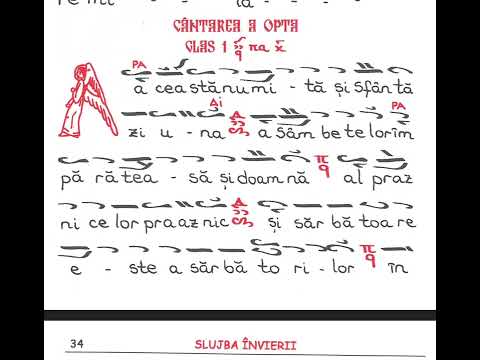 CÂNTAREA A OPTA
GLAS 1 πα
PA
A cea stă nu mi - tă și sfân tă
Δi PA
zi u - na a sâm be te lor îm
pă ră tea - să și doam nă al praz
ni ce lor pra az nic și săr bă toa re
e - ste a săr bă to ri - lor în
34 SLUJBA ÎNVIERII